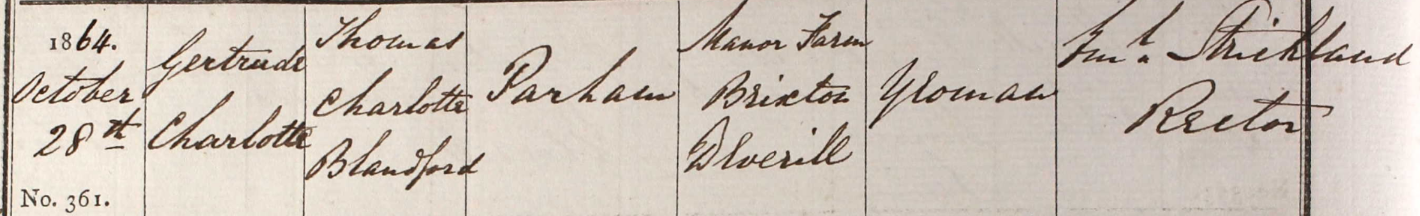 1864.
October
28th
No. 361.
Gertrude
Charlotte
Thomas
Charlotte
Blandford
Parham
Manor Farm
Brixton
Deverill
Yeoman
Strickland
Rector